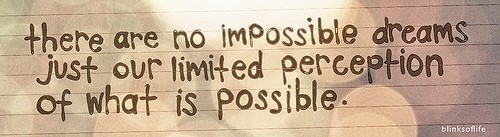 there are no impossible dreams
just our limited perception
of what is possible.
blinksoflife